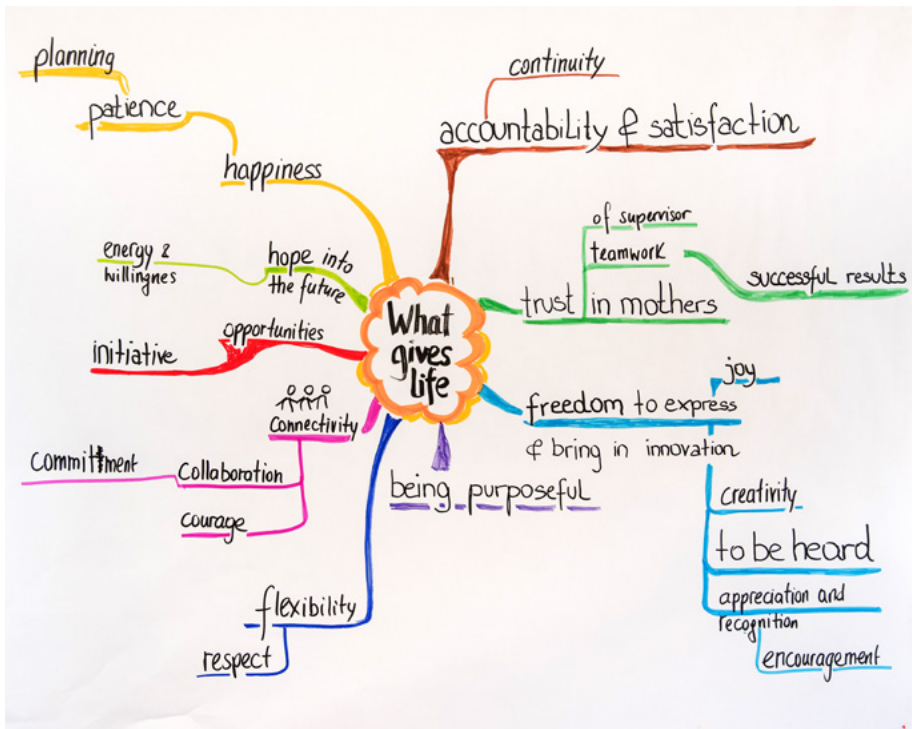 planning
patience
happiness
energy &
willingnes
hope into
the future
initiative
opportunities
connectivity
committment
collaboration
courage
flexibility
respect
What
gives
life
continuity
accountability & satisfaction
of supervisor
teamwork
successful results
trust in mothers
joy
freedom to express
& bring in innovation
creativity
to be heard
appreciation and
recognition
encouragement
being purposeful